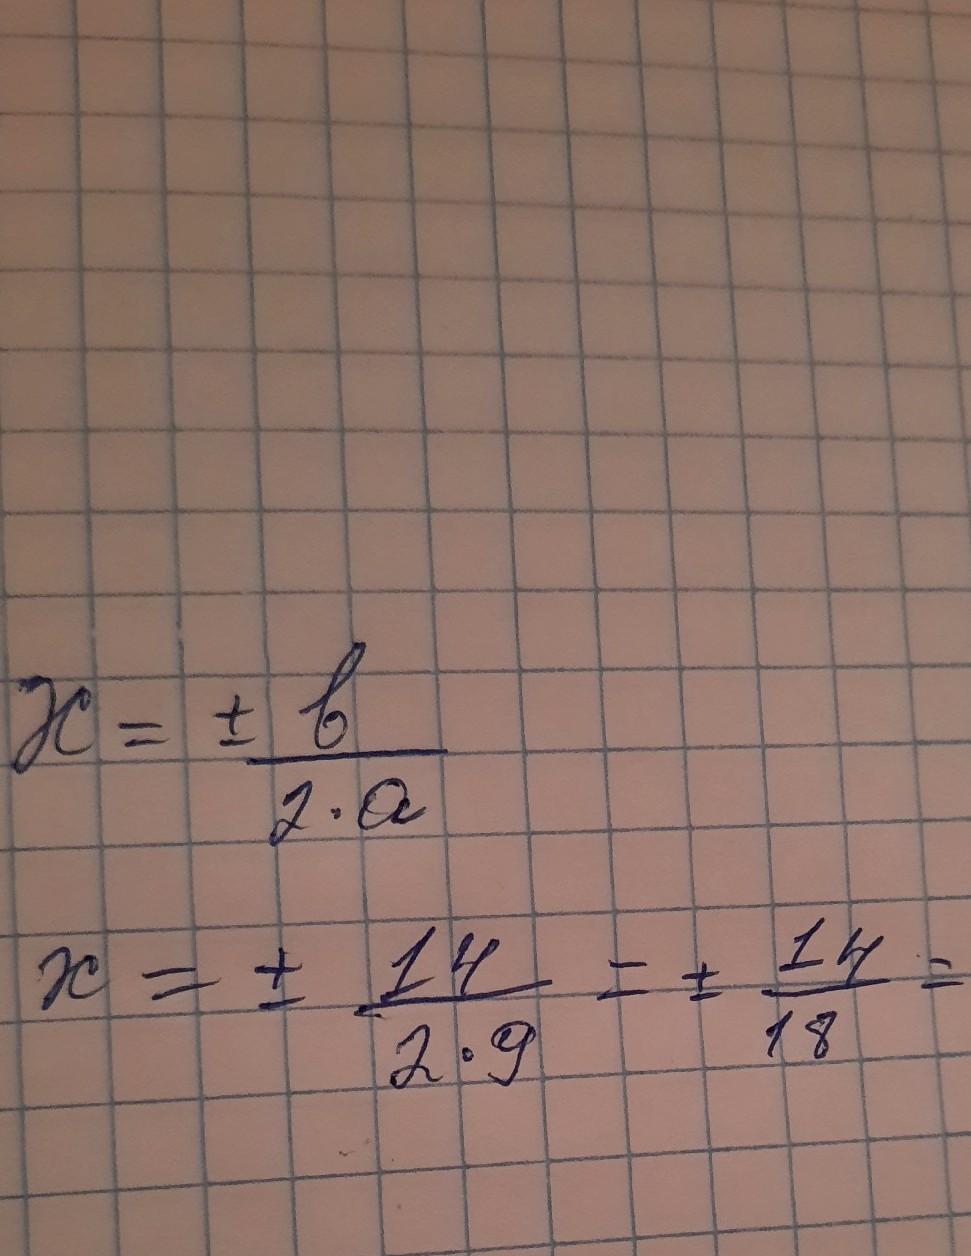 x = ± b / 2·a
x = ± 14 / 2·9 = ± 14 / 18 =